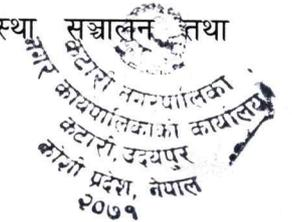 स्था सञ्चालन तथा
कटारी नगरपालिका
नगर कार्यपालिकाको कार्यालय
कटारी, उदयपुर
कोशी प्रदेश, नेपाल
२०७१